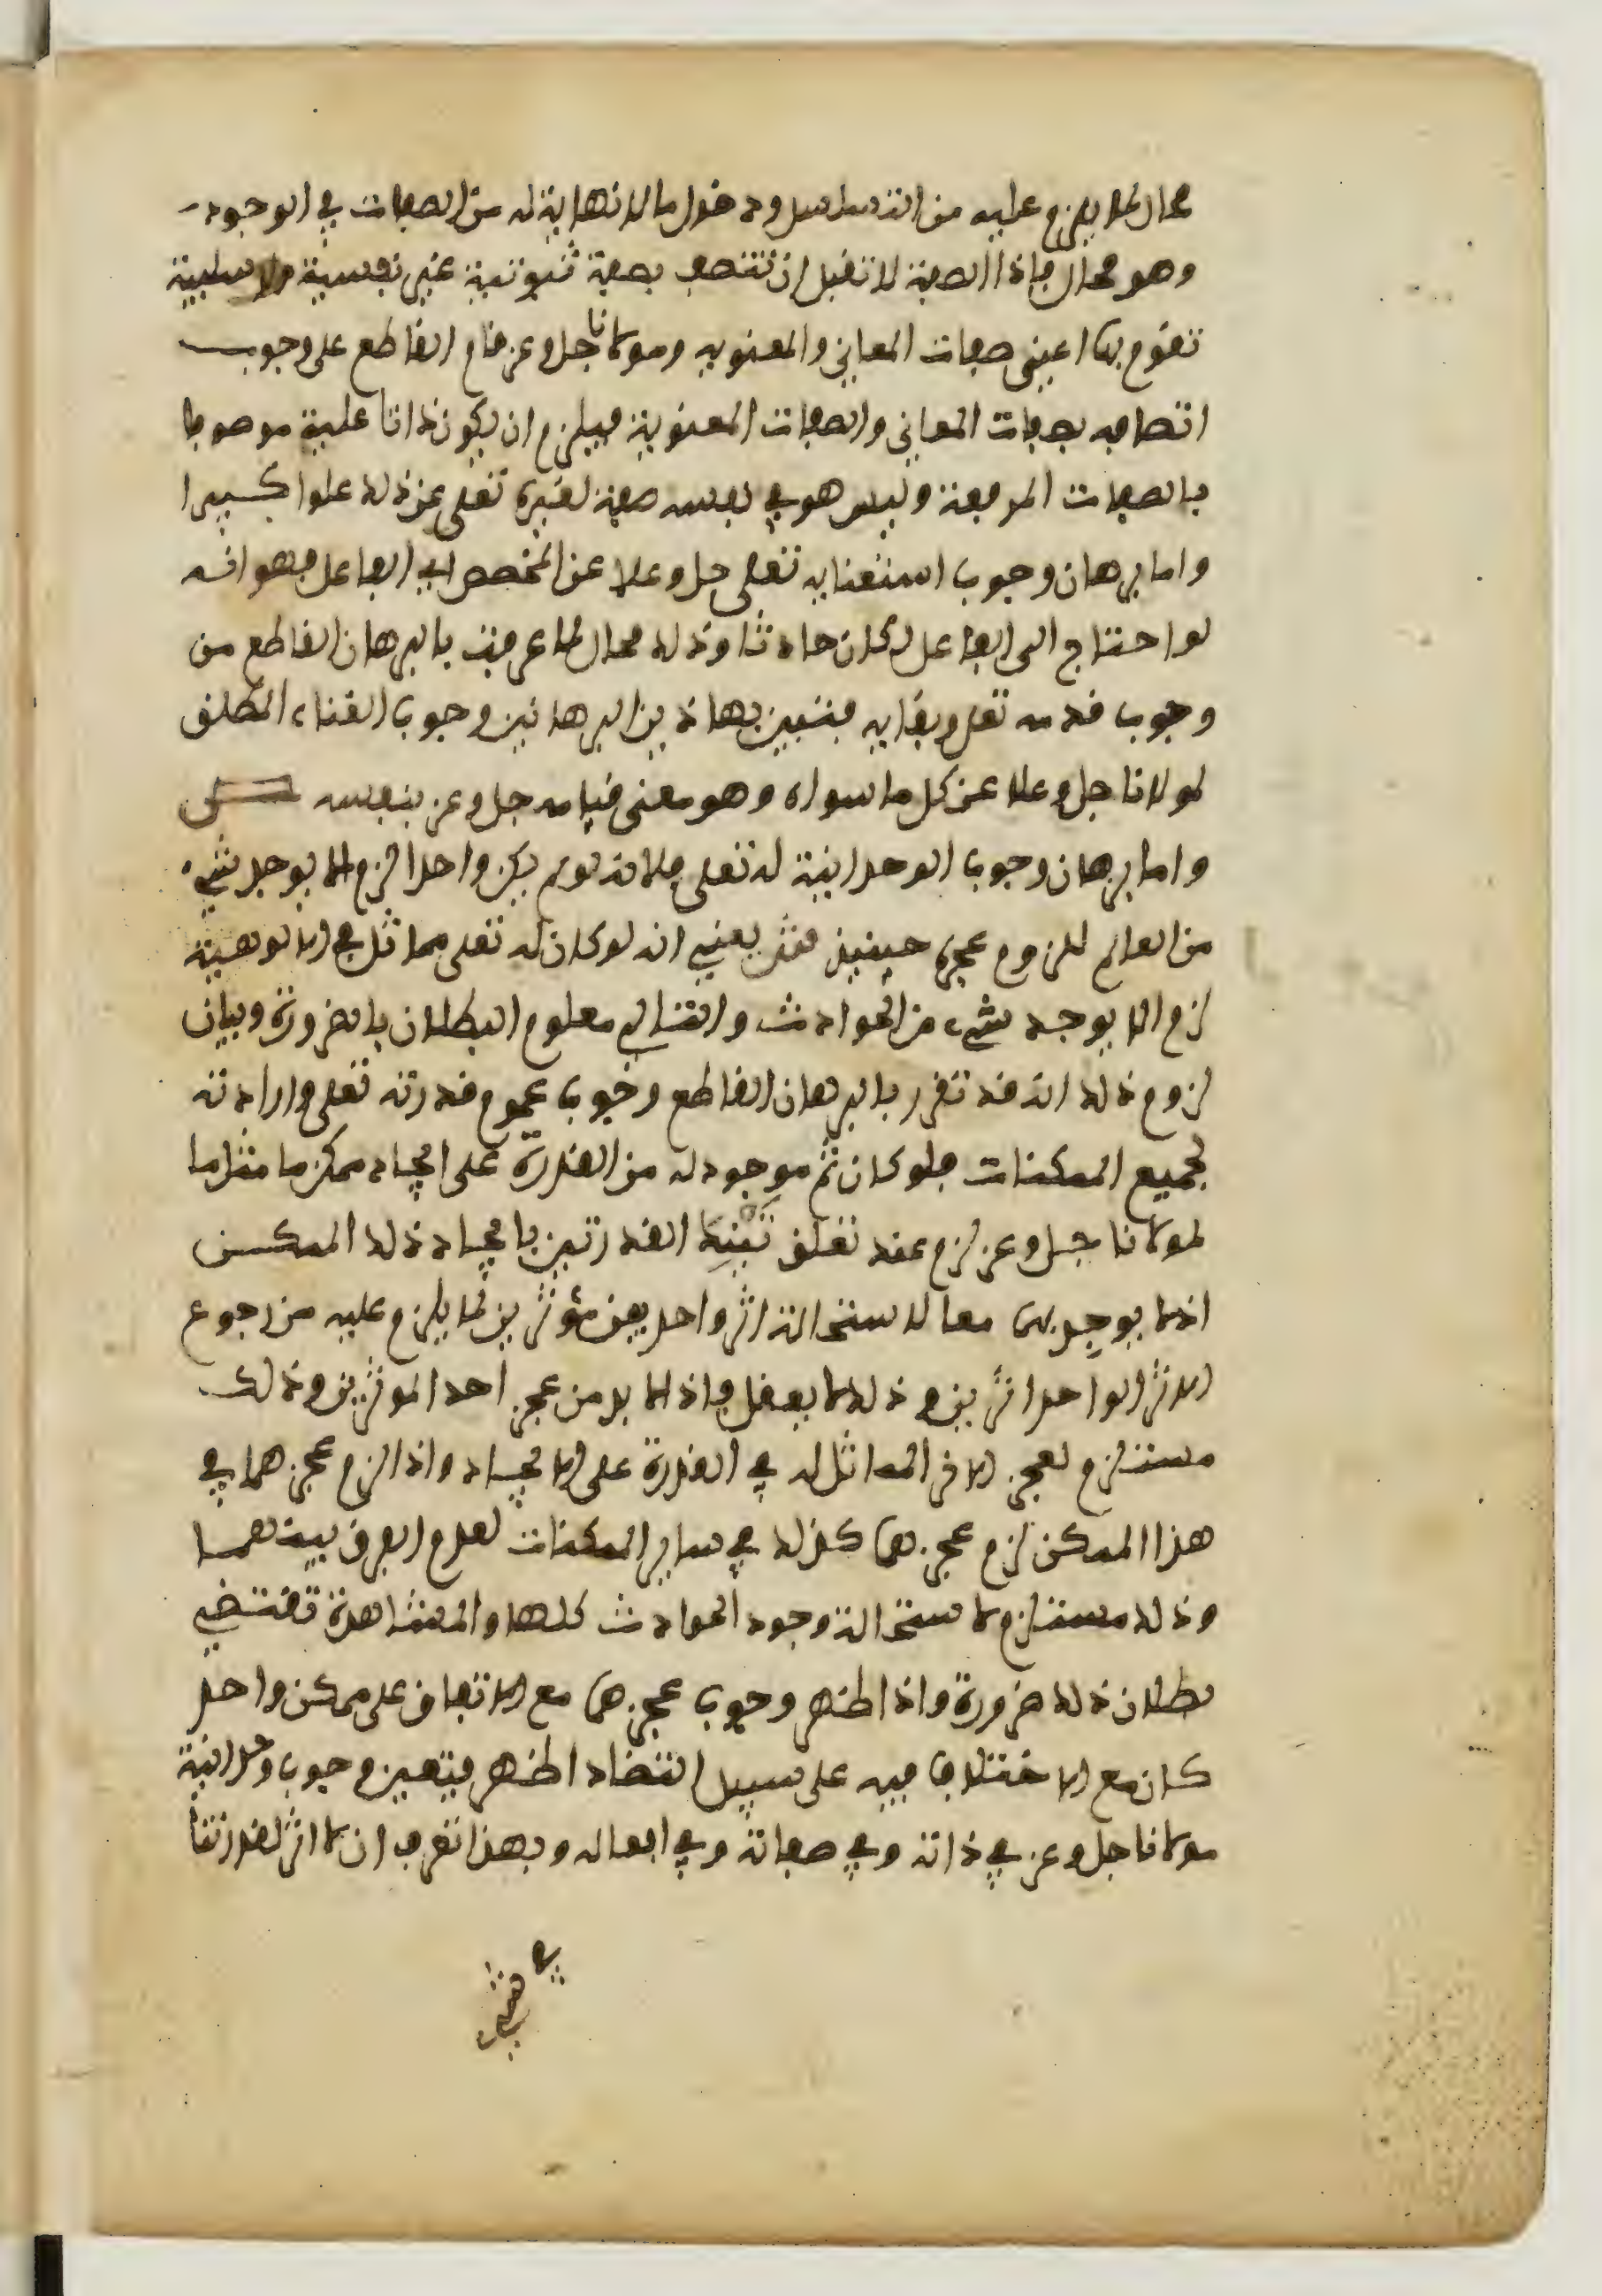 محال لما يلزم عليه من التسلسل ودخول ما لا نهاية له من الصفات في الوجود
وهو محال فإذا الصفة لا تقبل ان تتصف بصفة ثبوتية غير نفسية ولا سلبية
تقوم بها اعني صفات المعاني والمعنوية ومولانا جل وعز قام القاطع على وجوب
اتصافه بصفات المعاني والصفات المعنوية فيلزم ان يكون ذاتا علية موصوفا
بالصفات المرفعة وليس هو في نفسه صفة لغيره تعلى عن ذلك علوا كبيرا
واما برهان وجوب استغنايه تعلى جل وعلا عن المخصص اي الفاعل فهو انه
لو احتاج الى الفاعل لكان حادثا وذلك محال لما عرفت بالبرهان القاطع من
وجوب قدمه تعلى وبقايه فتبين بهاذين البرهانين وجوب الغناء المطلق
لمولانا جل وعلا عن كل ما سواه وهو معنى قيامه جل وعز بنفسه
واما برهان وجوب الوحدانية له تعلى فلانه لو لم يكن واحدا لزم الا يوجد شيء
من العالم للزوم عجزه حينيذ فش يعني انه لو كان له تعلى مماثل في الالوهية
لزم الا يوجد شيء من الحوادث والتالي معلوم البطلان بالضرورة وبيان
لزوم ذلك انه قد تقرر بالبرهان القاطع وجوب عموم قدرته تعلى وارادته
لجميع الممكنات فلو كان ثم موجود له من القدرة على ايجاد ممكن ما مثل ما
لمولانا جل وعز لزم عند تعلق تينك القدرتين بايجاد ذلك الممكن
الا يوجد بهما معا لاستحالة اثر واحد بين مؤثرين لما يلزم عليه من رجوع
الاثر الواحد اثرين وذلك لا يعقل فإذا لا بد من عجز احد الموثرين وذلك
مستلزم لعجز الاخر المماثل له في القدرة على الايجاد واذا لزم عجزهما في
هذا الممكن لزم عجزهما كذلك في ساير الممكنات لعدم الفرق بينهما
وذلك مستلزم لاستحالة وجود الحوادث كلها والمشاهدة تقتضي
بطلان ذلك ضرورة واذا ظهر وجوب عجزهما مع الاتفاق على ممكن واحد
كان مع الاختلاف فيه على سبيل التضاد اظهر فيتعين وجوب وحدانية
مولانا جل وعز في ذاته وفي صفاته وفي افعاله وبهذا تعرف ان لا اثر لقدرتنا
في شيء